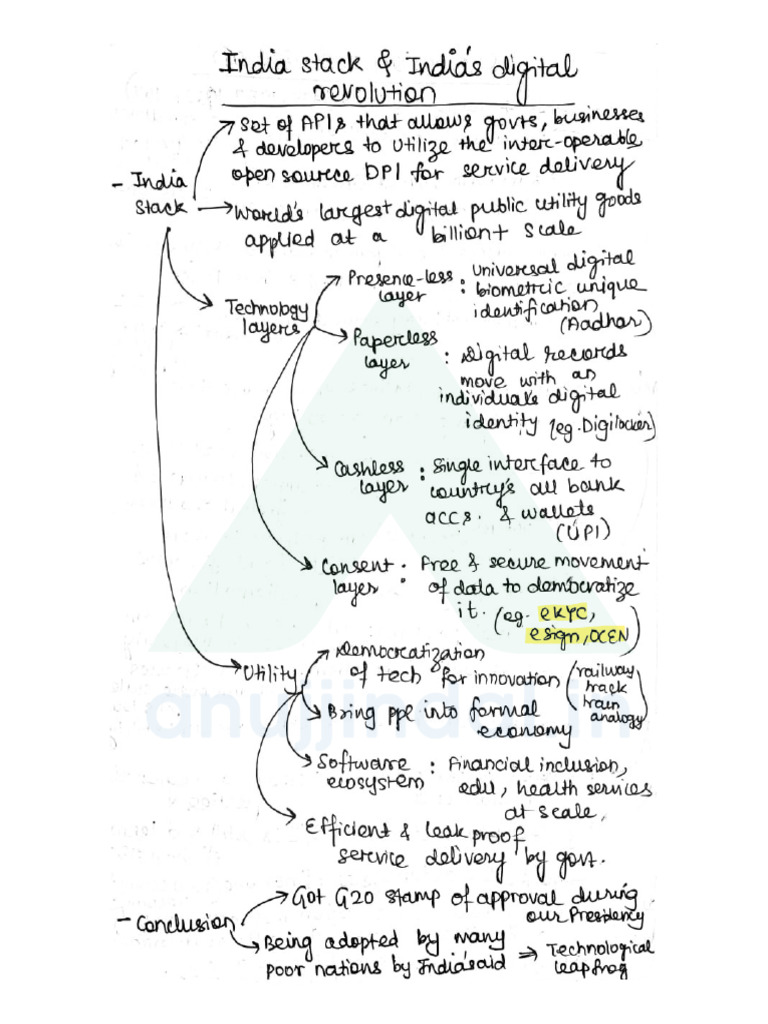 India stack & India's digital
revolution
- India
stack
Set of APIs that allows govts, businesses
& developers to utilize the inter-operable
open source DPI for service delivery
World's largest digital public utility goods
applied at a billient scale
Technology
layers
Presence-less
layer
: Universal digital
biometric unique
identification
(Aadhar)
Paperless
layer
: Digital records
move with an
individual's digital
identity (eg. Digilocker)
Cashless
layer
: Single interface to
country's all bank
accs. & wallets
(UPI)
Consent
layer
: Free & secure movement
of data to democratize
it. (eg. eKYC,
esign, OCEN)
Utility
Democratization
of tech for innovation
(railway
track
train
analogy)
Bring ppl into formal
economy
Software
ecosystem
: Financial inclusion,
edu, health services
at scale,
Efficient & leak proof
service delivery by govt.
- Conclusion
Got G20 stamp of approval during
our Presidency
Being adopted by many
poor nations by India's aid
⇒ Technological
leapfrog
anujjindal.in